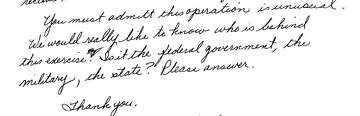 You must admit this operation is unusual.
We would really like to know who is behind
this exercise? Is it the federal government, the
military, the state? Please answer.
Thank you.